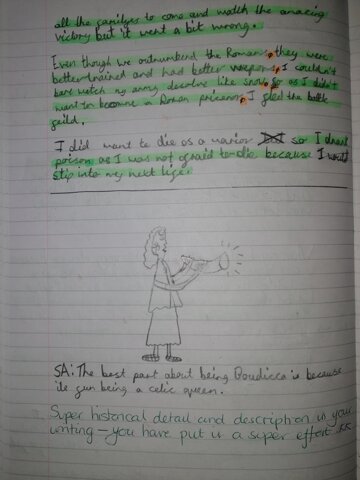 all the familyes to come and watch the amazing
victory but it went a bit wrong.
Even though we outnumbend the Romans, they were
better trained and had better weapons, I couldn't
bare watch my army desolve like snow, so as I didn't
want to become a Roman prisoner, I fled the battle
feild.
I did want to die as a warior so I drank
poison as I was not afraid to die because I would
slip into my next life.
SA: The best part about being Boudicca is because
its fun being a celic queen.
Super historical detail and description in your
writing - you have put in a super effort